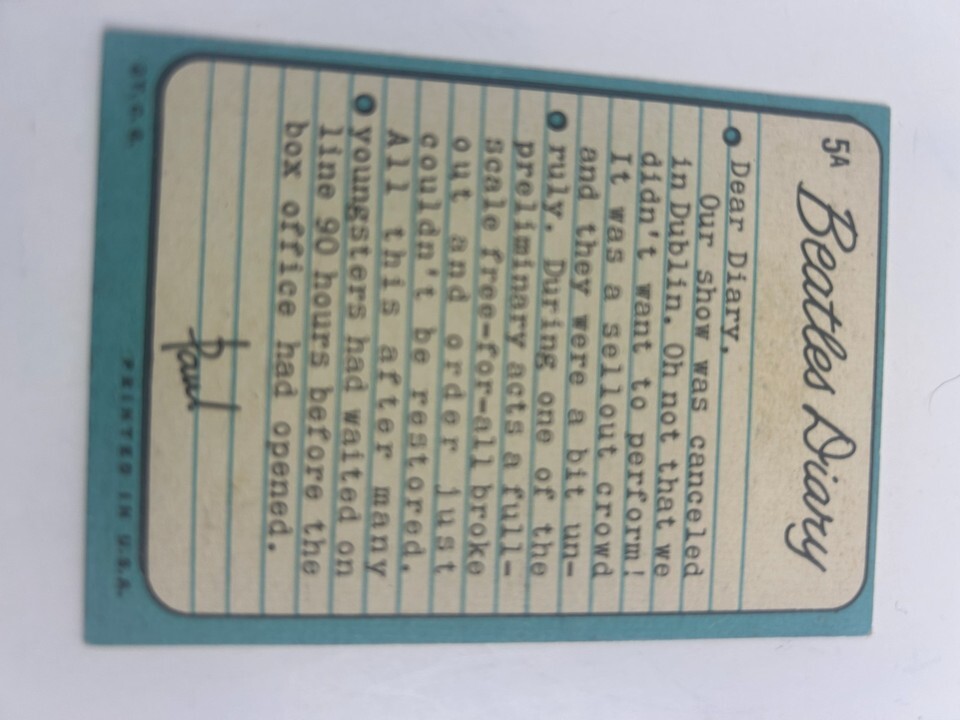 5A
Beatles Diary
Dear Diary,
Our show was canceled
in Dublin. Oh not that we
didn't want to perform!
It was a sellout crowd
and they were a bit un-
ruly. During one of the
preliminary acts a full-
scale free-for-all broke
out and order just
couldn't be restored.
All this after many
youngsters had waited on
line 90 hours before the
box office had opened.
Paul
©T.C.G. PRINTED IN U.S.A.